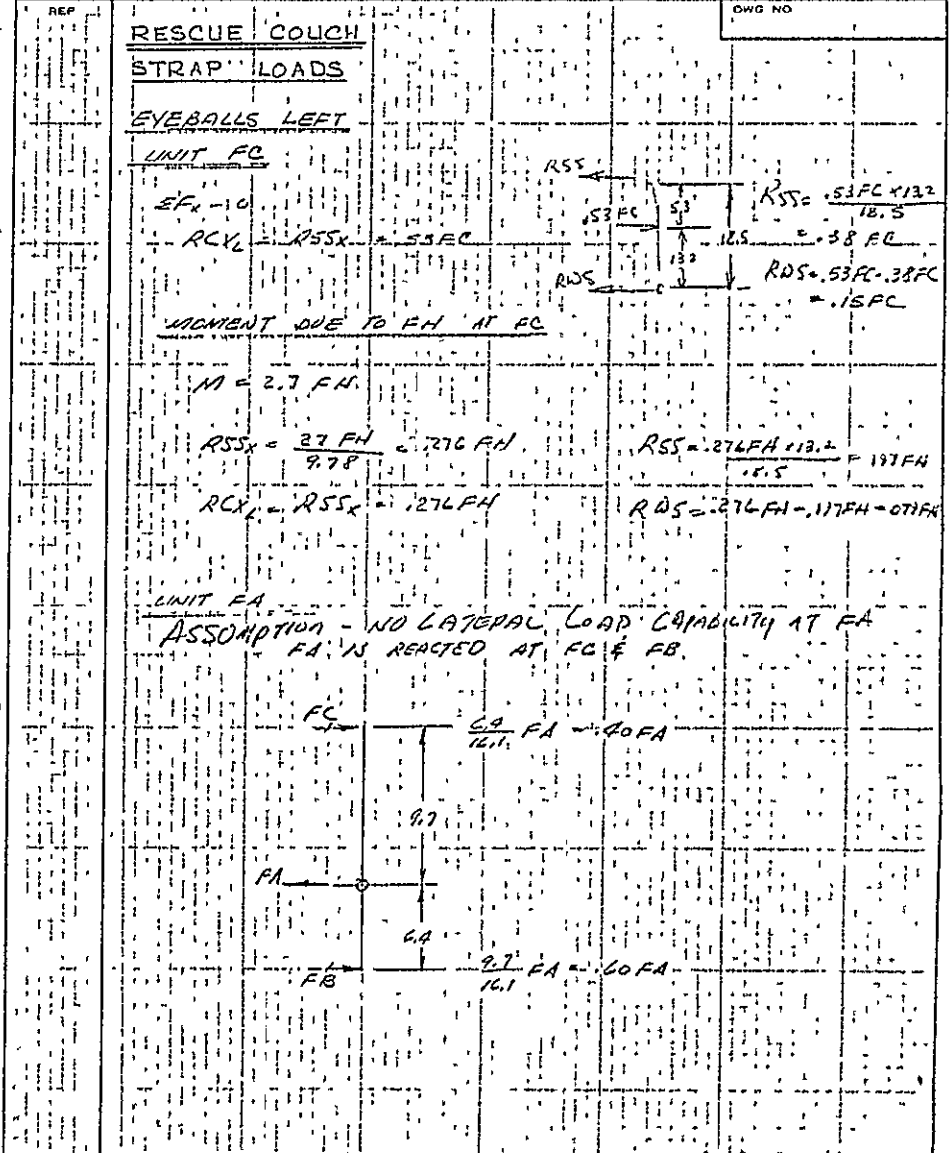 REF
DWG NO
RESCUE COUCH
STRAP LOADS
EYEBALLS LEFT
UNIT FC
ΣFx = 0
RCXL = RSSx = .53FC
RSS
.53 FC
RWS
5.3
13.2
18.5
RSS = .53 FC x 13.2 / 18.5
= .38 FC
RWS = .53FC - .38FC
= .15FC
MOMENT DUE TO FH AT FC
M = 2.7 FH
RSSx = 2.7 FH / 9.78 = .276 FH
RSS = .276FH x 13.2 / 18.5 = .197FH
RCXL = RSSx = .276FH
RWS = .276FH - .197FH = .079FH
UNIT FA
ASSUMPTION - NO LATERAL LOAD CAPABILITY AT FA
FA IS REACTED AT FC & FB.
FC
6.4 / 16.1 FA = .40FA
9.7
FA
6.4
FB
9.7 / 16.1 FA = .60FA